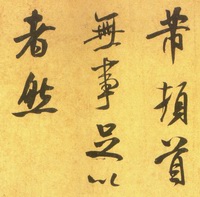 芾頓首
無事足以
者然